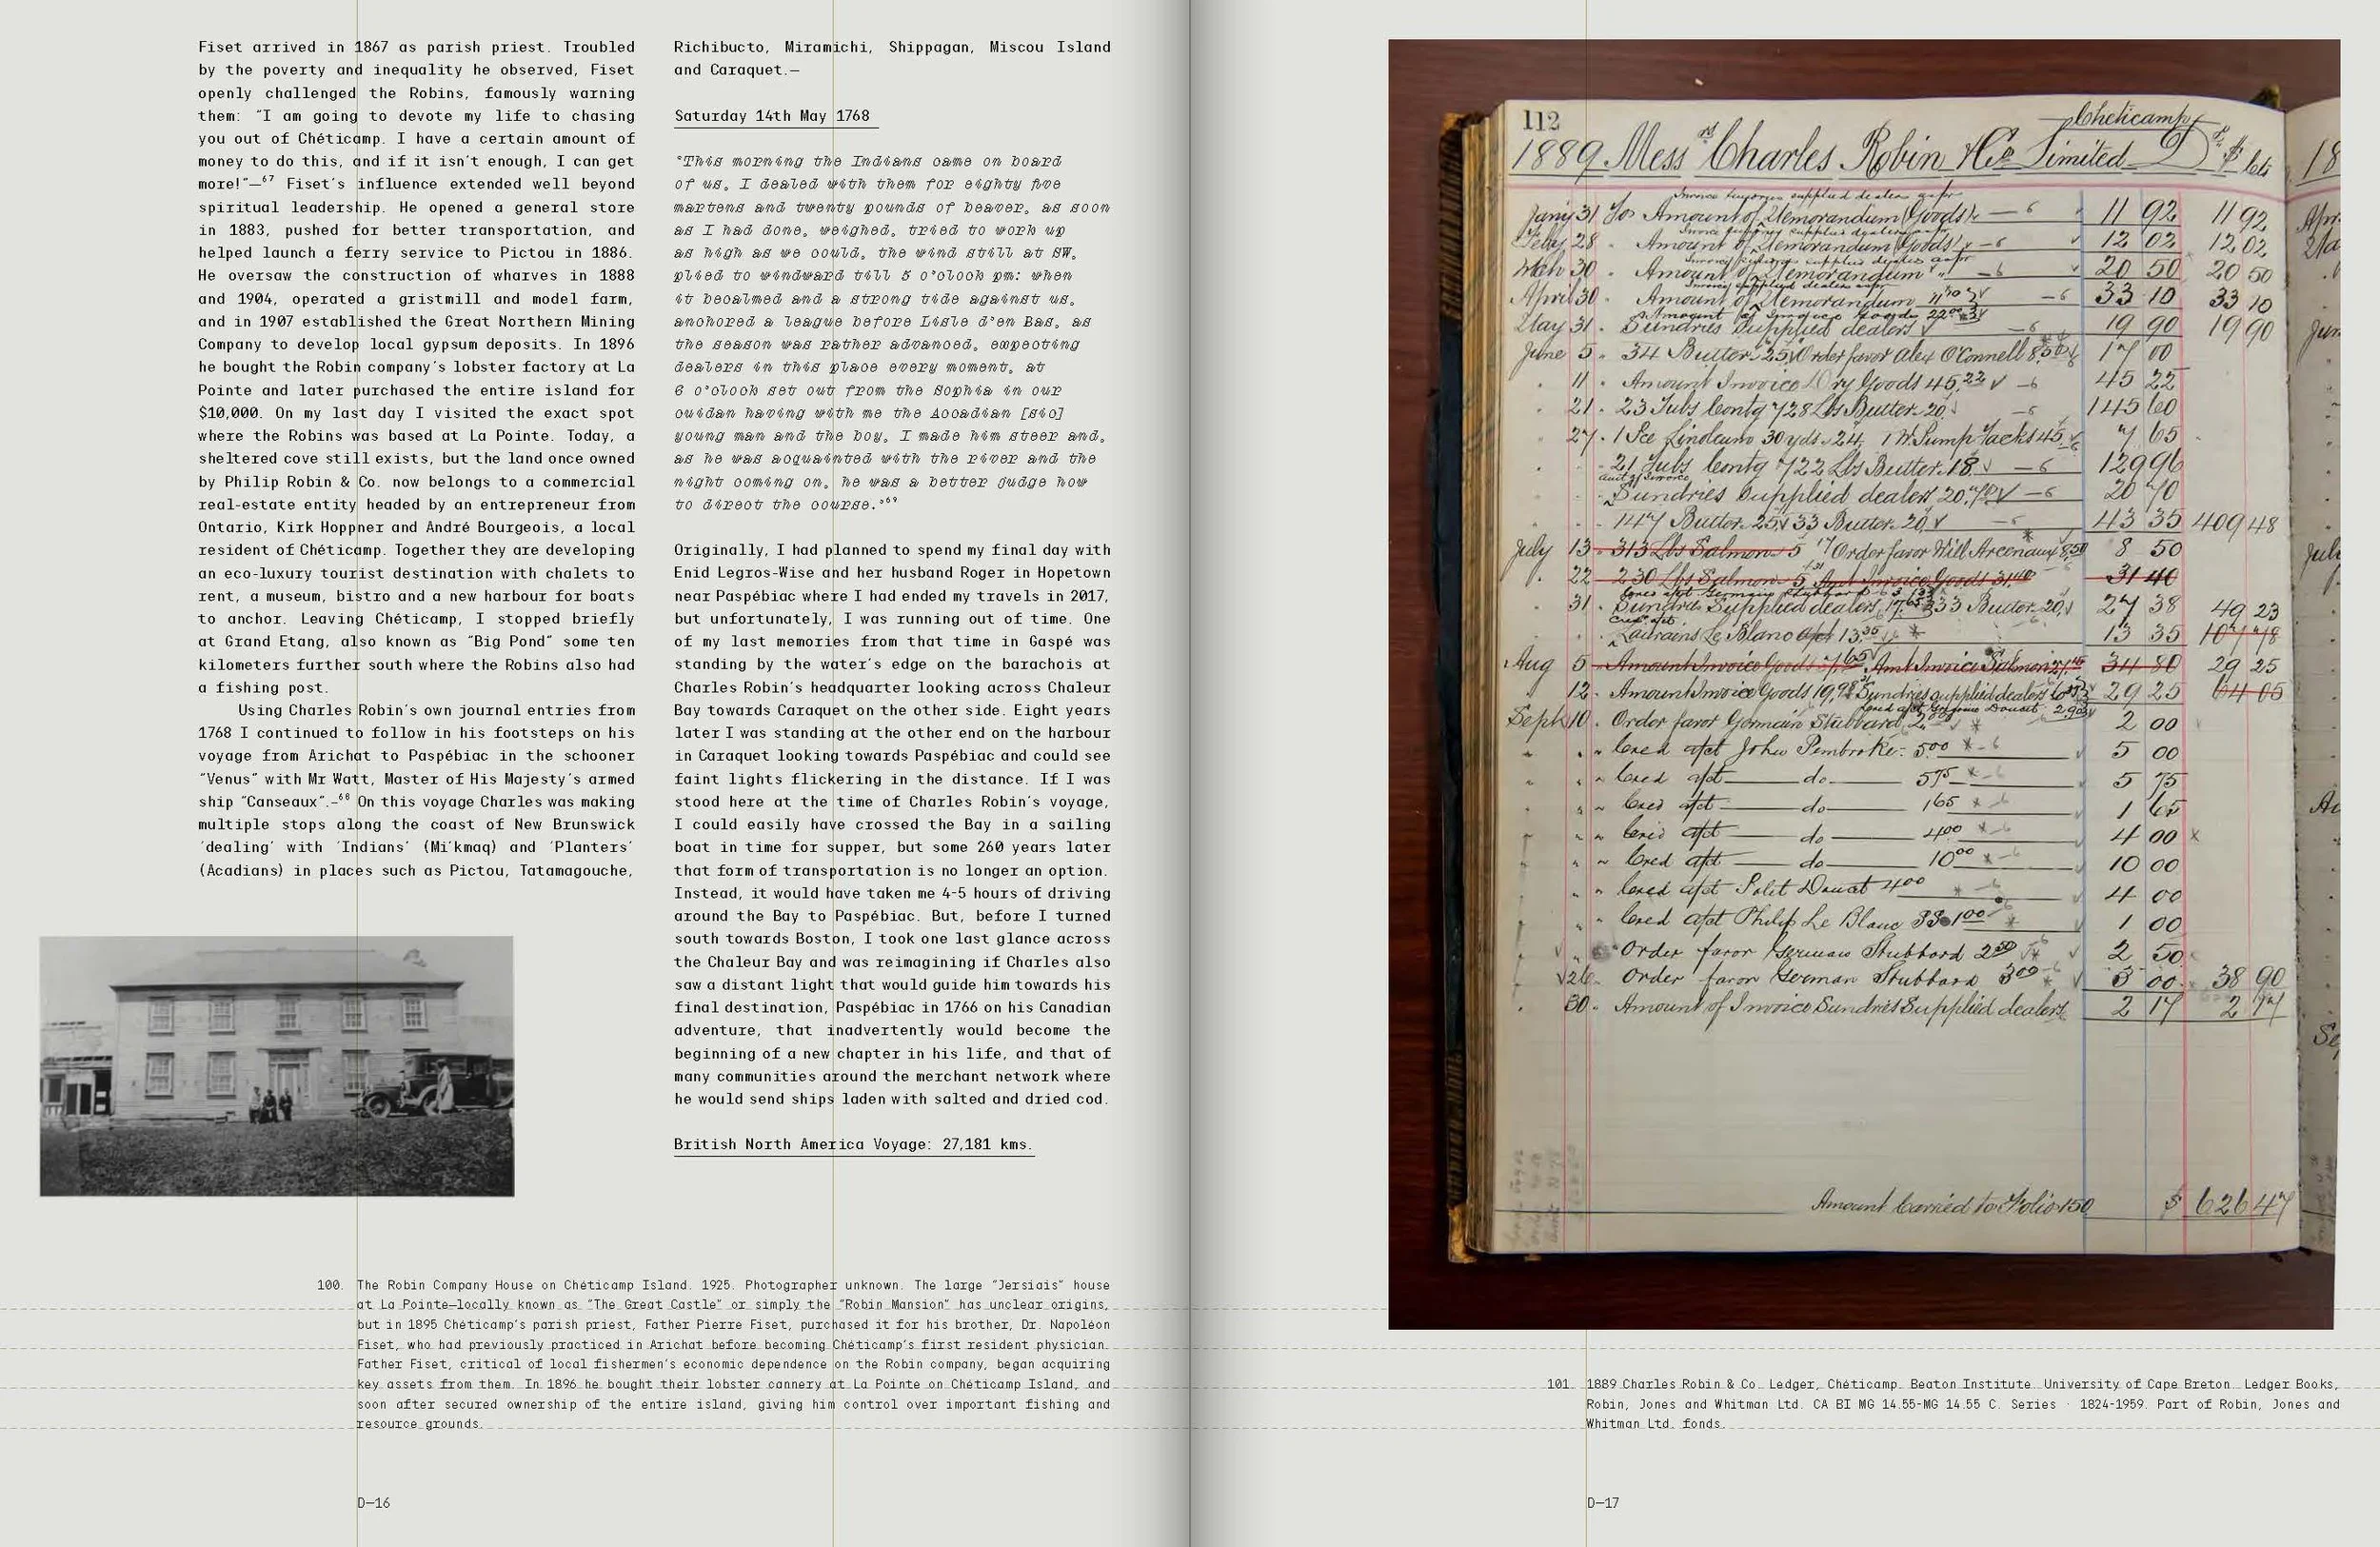 Fiset arrived in 1867 as parish priest. Troubled
by the poverty and inequality he observed, Fiset
openly challenged the Robins, famously warning
them: “I am going to devote my life to chasing
you out of Chéticamp. I have a certain amount of
money to do this, and if it isn’t enough, I can get
more!”—67 Fiset’s influence extended well beyond
spiritual leadership. He opened a general store
in 1883, pushed for better transportation, and
helped launch a ferry service to Pictou in 1886.
He oversaw the construction of wharves in 1888
and 1904, operated a gristmill and model farm,
and in 1907 established the Great Northern Mining
Company to develop local gypsum deposits. In 1896
he bought the Robin company’s lobster factory at La
Pointe and later purchased the entire island for
$10,000. On my last day I visited the exact spot
where the Robins was based at La Pointe. Today, a
sheltered cove still exists, but the land once owned
by Philip Robin & Co. now belongs to a commercial
real-estate entity headed by an entrepreneur from
Ontario, Kirk Hoppner and André Bourgeois, a local
resident of Chéticamp. Together they are developing
an eco-luxury tourist destination with chalets to
rent, a museum, bistro and a new harbour for boats
to anchor. Leaving Chéticamp, I stopped briefly
at Grand Etang, also known as “Big Pond” some ten
kilometers further south where the Robins also had
a fishing post.
Using Charles Robin’s own journal entries from
1768 I continued to follow in his footsteps on his
voyage from Arichat to Paspébiac in the schooner
“Venus” with Mr Watt, Master of His Majesty’s armed
ship “Canseaux”.—68 On this voyage Charles was making
multiple stops along the coast of New Brunswick
‘dealing’ with ‘Indians’ (Mi’kmaq) and ‘Planters’
(Acadians) in places such as Pictou, Tatamagouche,
Richibucto, Miramichi, Shippagan, Miscou Island
and Caraquet.—
Saturday 14th May 1768
“This morning the Indians came on board
of us. I dealed with them for eighty five
martens and twenty pounds of beaver. as soon
as I had done. weighed. tried to work up
as high as we could. the wind still at SW.
plied to windward till 5 o’clock pm: when
it becalmed and a strong tide against us.
anchored a league before Lisle d’en Bas. as
the season was rather advanced. expecting
dealers in this place every moment. at
6 o’clock set out from the Sophia in our
cuidan having with me the Accadian [sic]
young man and the boy. I made him steer and.
as he was acquainted with the river and the
night coming on. he was a better judge how
to direct the course.”69
Originally, I had planned to spend my final day with
Enid Legros-Wise and her husband Roger in Hopetown
near Paspébiac where I had ended my travels in 2017,
but unfortunately, I was running out of time. One
of my last memories from that time in Gaspé was
standing by the water’s edge on the barachois at
Charles Robin’s headquarter looking across Chaleur
Bay towards Caraquet on the other side. Eight years
later I was standing at the other end on the harbour
in Caraquet looking towards Paspébiac and could see
faint lights flickering in the distance. If I was
stood here at the time of Charles Robin’s voyage,
I could easily have crossed the Bay in a sailing
boat in time for supper, but some 260 years later
that form of transportation is no longer an option.
Instead, it would have taken me 4-5 hours of driving
around the Bay to Paspébiac. But, before I turned
south towards Boston, I took one last glance across
the Chaleur Bay and was reimagining if Charles also
saw a distant light that would guide him towards his
final destination, Paspébiac in 1766 on his Canadian
adventure, that inadvertently would become the
beginning of a new chapter in his life, and that of
many communities around the merchant network where
he would send ships laden with salted and dried cod.
British North America Voyage: 27,181 kms.
100. The Robin Company House on Chéticamp Island. 1925. Photographer unknown. The large “Jersiais” house
at La Pointe—locally known as “The Great Castle” or simply the “Robin Mansion” has unclear origins,
but in 1895 Chéticamp’s parish priest, Father Pierre Fiset, purchased it for his brother, Dr. Napoléon
Fiset, who had previously practiced in Arichat before becoming Chéticamp’s first resident physician.
Father Fiset, critical of local fishermen’s economic dependence on the Robin company, began acquiring
key assets from them. In 1896 he bought their lobster cannery at La Pointe on Chéticamp Island, and
soon after secured ownership of the entire island, giving him control over important fishing and
resource grounds.
D—16
112
Cheticamp
1889 Messrs Charles Robin & Co Limited Dr $ cts
Jany 31 To Amount of Memorandum (Goods) 11 92 11 92
Feby 28 Amount of Memorandum (Goods) 12 02 12 02
Mch 30 Amount of Memorandum 20 50 20 50
April 30 Amount of Memorandum 33 10 33 10
May 31 Sundries supplied dealers 19 90 19 90
June 5 34 Butter 25 Order favor Alex O'Connell 8.50 17 00
11 Amount Invoice Dry Goods 45.22 45 22
21 23 Tubs Contg 728 Lbs Butter 20 145 60
27 1 Pce Linoleum 30 yds 24 7 65
21 Tubs Contg 722 Lbs Butter 18 129 96
Sundries Supplied dealers 20.70 20 70
147 Butter 25 33 Butter 20 43 35 409 48
July 13 313 Lbs Salmon 5 Order favor Will Arcenaux 8.50 8 50
22 230 Lbs Salmon 5 Amt Invoice Goods 31.40 31 40
31 Sundries Supplied dealers 17.65 Butter 20 27 38 49 23
Laurains Le Blanc 13.35 13 35 107 78
Aug 5 Amount Invoice Goods Amt Invoice Salmon 34 80 29 25
12 Amount Invoice Goods Sundries supplied dealers 29 25 64 05
Sept 10 Order favor Germain Stubbard 2.00 2 00
Cred apct John Pembroke 5.00 5 00
Cred apct do 5.75 5 75
Cred apct do 1.65 1 65
Cred apct do 4.00 4 00
Cred apct do 10.00 10 00
Cred apct Doucet 4.00 4 00
Cred apct Philip Le Blanc 1.00 1 00
Order favor German Stubbord 2.50 2 50
26 Order favor German Stubbard 3.00 3 00 38 90
30 Amount of Invoice Sundries Supplied dealers 2 17 2 17
Amount Carried to Folio 150 $ 626 47
101. 1889 Charles Robin & Co. Ledger, Chéticamp. Beaton Institute. University of Cape Breton. Ledger Books,
Robin, Jones and Whitman Ltd. CA BI MG 14.55-MG 14.55 C. Series · 1824-1959. Part of Robin, Jones and
Whitman Ltd. fonds.
D—17